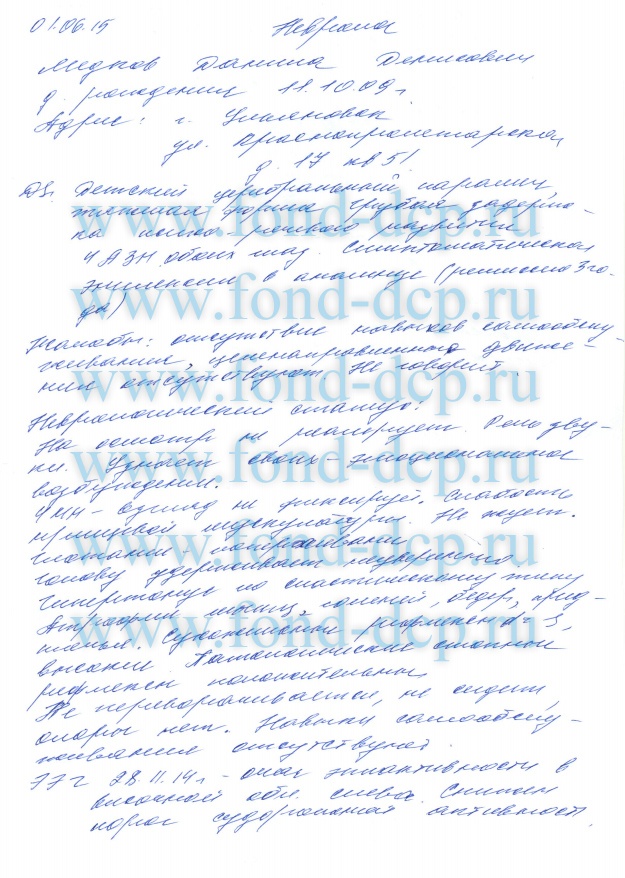 01.06.15 Невролог
Медков Данила Денисович
д. рождения 11.10.09г
Адрес: г. Ульяновск
ул. Краснопролетарская
д. 17 кв 51
DS: Детский церебральный паралич,
тяжелая форма. Грубая задерж-
ка речевого развития
ЧАЗН обоих глаз. Симптоматическая
эпилепсия в анамнезе (ремиссия 3 го-
да)
Жалобы: отсутствие навыков самообслу-
живания, целенаправленного движе-
ния отсутствуют. Не говорит.
Неврологический статус:
На осмотр не реагирует. Речи зву-
ки. Узнает своих эмоциональное
возбуждении.
ЧМН - взгляд не фиксирует. Слабость
мускулатуры. Не жует.
Глотание -
Голову удерживает неуверенно.
Гипертонус по спастическому типу
Атрофии мышц голеней, бедер, пред-
плечья. Сухожильные рефлексы d=s,
высокие. Патологические стопные
рефлексы положительны.
Не переворачивается, не сидит,
опоры нет. Навыки самообслу-
живания отсутствуют.
ЭЭГ 28.11.14г - очаг эпиактивности в
височной обл. слева. Снижен
порог судорожной активности.
www.fond-dcp.ru
www.fond-dcp.ru
www.fond-dcp.ru
www.fond-dcp.ru
www.fond-dcp.ru
www.fond-dcp.ru